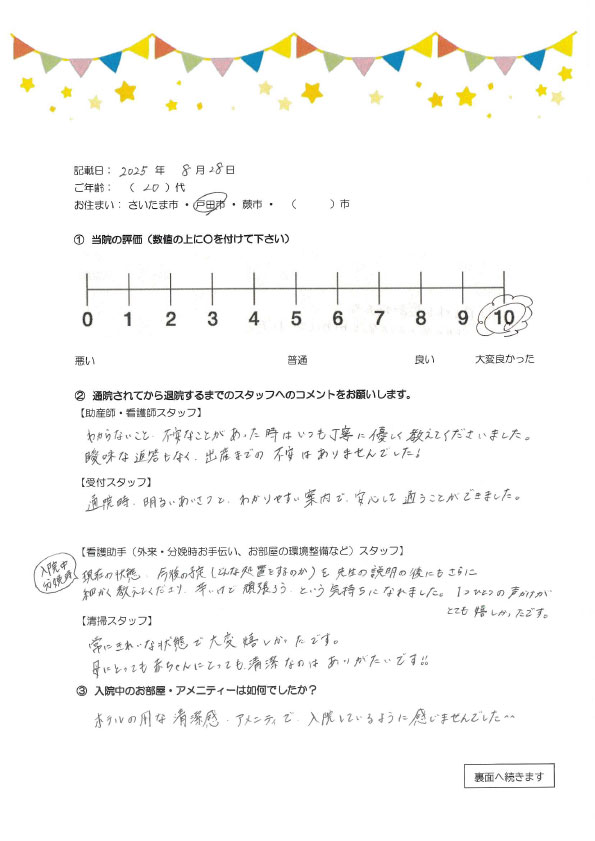 記載日： 2025 年 8 月 28 日
ご年齢： （ 20 ）代
お住まい： さいたま市 ・ 戸田市 ・ 蕨市 ・ （ ）市
① 当院の評価（数値の上に〇を付けて下さい）
0 1 2 3 4 5 6 7 8 9 10
悪い 普通 良い 大変良かった
② 通院されてから退院するまでのスタッフへのコメントをお願いします。
【助産師・看護師スタッフ】
わからないこと、不安なことがあった時はいつも丁寧に優しく教えてくださいました。
曖昧な返答もなく、出産までの不安はありませんでした！
【受付スタッフ】
通院時、明るいあいさつと、わかりやすい案内で、安心して通うことができました。
【看護助手（外来・分娩時お手伝い、お部屋の環境整備など）スタッフ】
入院中
分娩時
現在の状態、今後の予定（どんな処置をするのか）を先生の説明の後にもさらに
細かく教えてくださり、辛いけど頑張ろう、という気持ちになれました。1つひとつの声かけが
とても嬉しかったです。
【清掃スタッフ】
常にきれいな状態で大変嬉しかったです。
母にとっても赤ちゃんにとっても清潔なのはありがたいです!!
③ 入院中のお部屋・アメニティーは如何でしたか？
ホテルの用な清潔感、アメニティで、入院しているように感じませんでした^^
裏面へ続きます